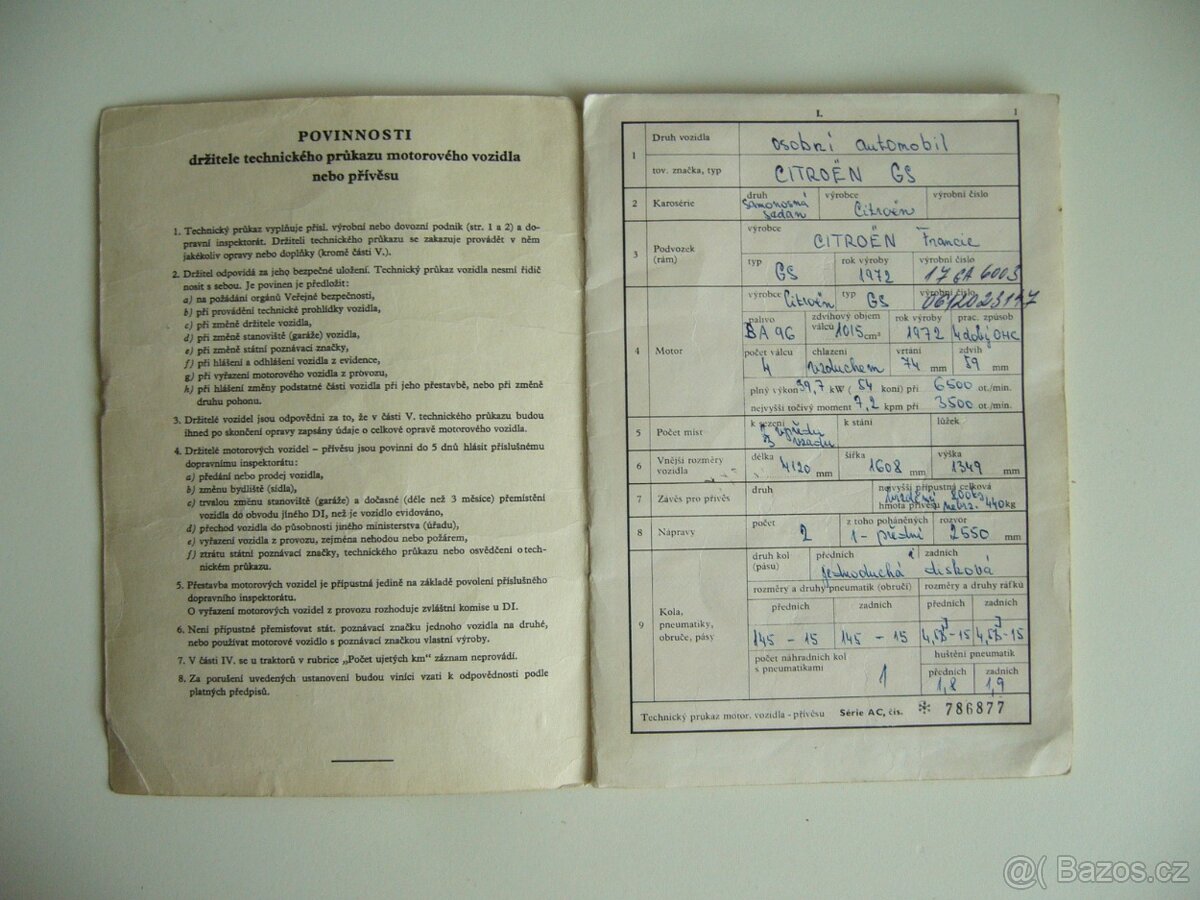 POVINNOSTI
držitele technického průkazu motorového vozidla
nebo přívěsu
1. Technický průkaz vyplňuje přísl. výrobní nebo dovozní podnik (str. 1 a 2) a do-
pravní inspektorát. Držiteli technického průkazu se zakazuje provádět v něm
jakékoliv opravy nebo doplňky (kromě části V.).
2. Držitel odpovídá za jeho bezpečné uložení. Technický průkaz vozidla nesmí řidič
nosit s sebou. Je povinen je předložit:
a) na požádání orgánů Veřejné bezpečnosti,
b) při provádění technické prohlídky vozidla,
c) při změně držitele vozidla,
d) při změně stanoviště (garáže) vozidla,
e) při změně státní poznávací značky,
f) při hlášení a odhlášení vozidla z evidence,
g) při vyřazení motorového vozidla z provozu,
h) při hlášení změny podstatné části vozidla při jeho přestavbě, nebo při změně
druhu pohonu.
3. Držitelé vozidel jsou odpovědni za to, že v části V. technického průkazu budou
ihned po skončení opravy zapsány údaje o celkové opravě motorového vozidla.
4. Držitelé motorových vozidel – přívěsu jsou povinni do 5 dnů hlásit příslušnému
dopravnímu inspektorátu:
a) předání nebo prodej vozidla,
b) změnu bydliště (sídla),
c) trvalou změnu stanoviště (garáže) a dočasné (déle než 3 měsíce) přemístění
vozidla do obvodu jiného DI, než je vozidlo evidováno,
d) přechod vozidla do působnosti jiného ministerstva (úřadu),
e) vyřazení vozidla z provozu, zejména nehodou nebo požárem,
f) ztrátu státní poznávací značky, technického průkazu nebo osvědčení o tech-
nickém průkazu.
5. Přestavba motorových vozidel je přípustná jedině na základě povolení příslušného
dopravního inspektorátu.
O vyřazení motorových vozidel z provozu rozhoduje zvláštní komise u DI.
6. Není přípustné přemisťovat stát. poznávací značku jednoho vozidla na druhé,
nebo používat motorové vozidlo s poznávací značkou vlastní výroby.
7. V části IV. se u traktorů v rubrice „Počet ujetých km" záznam neprovádí.
8. Za porušení uvedených ustanovení budou viníci vzati k odpovědnosti podle
platných předpisů.
I. 1
1 Druh vozidla osobní automobil
tov. značka, typ CITROËN GS
2 Karosérie druh samonosná sedan výrobce Citroën výrobní číslo
3 Podvozek (rám) výrobce CITROËN Francie
typ GS rok výroby 1972 výrobní číslo
4 Motor výrobce Citroën typ GS výrobní číslo
palivo BA 96 zdvihový objem válců 1015 cm³ rok výroby 1972 prac. způsob 4dobý OHC
počet válců 4 chlazení vzduchem vrtání 74 mm zdvih 59 mm
plný výkon 39,7 kW ( 54 koní) při 6500 ot./min.
nejvyšší točivý moment 7,2 kpm při 3500 ot./min.
5 Počet míst k sezení vpředu 3 vzadu k stání lůžek
6 Vnější rozměry vozidla délka 4120 mm šířka 1608 mm výška 1349 mm
7 Závěs pro přívěs druh nejvyšší přípustná celková
hmota přívěsu 800 kg nebrz. 440 kg
8 Nápravy počet 2 z toho poháněných 1 - přední rozvor 2550 mm
9 Kola, pneumatiky, obruče, pásy druh kol (pásu) předních i zadních
jednoduchá disková
rozměry a druhy pneumatik (obručí) rozměry a druhy ráfků
předních zadních předních zadních
145 - 15 145 - 15
počet náhradních kol s pneumatikami 1 huštění pneumatik
předních 1,8 zadních 1,9
Technický průkaz motor. vozidla - přívěsu Série AC, čís. * 786877
@( Bazos.cz